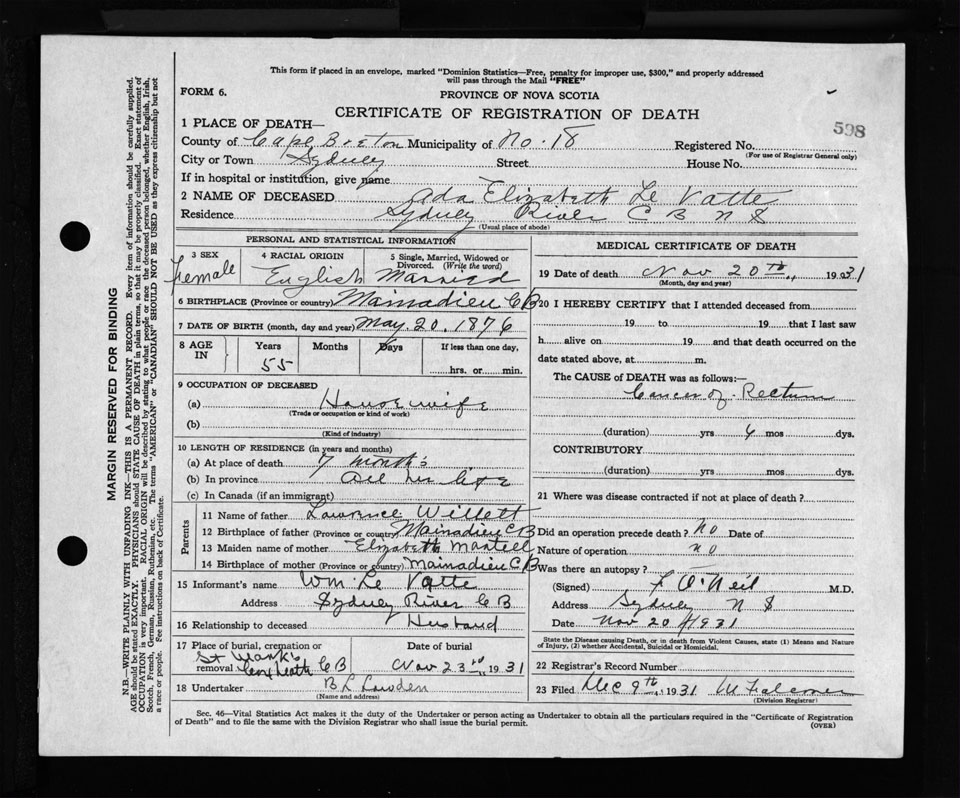 This form if placed in an envelope, marked "Dominion Statistics—Free, penalty for improper use, $300," and properly addressed
will pass through the Mail "FREE"
FORM 6.
PROVINCE OF NOVA SCOTIA
CERTIFICATE OF REGISTRATION OF DEATH
598
1 PLACE OF DEATH—
County of Cape Breton Municipality of No. 18 Registered No.
(For use of Registrar General only)
City or Town Sydney Street House No.
If in hospital or institution, give name
2 NAME OF DECEASED Ada Elizabeth Le Vatte
Residence Sydney River C B N S
(Usual place of abode)
PERSONAL AND STATISTICAL INFORMATION
3 SEX Female
4 RACIAL ORIGIN English
5 Single, Married, Widowed or Divorced. (Write the word) Married
6 BIRTHPLACE (Province or country) Mainadieu C B
7 DATE OF BIRTH (month, day and year) May. 20. 1876
8 AGE IN Years 55 Months Days If less than one day, hrs. or min.
9 OCCUPATION OF DECEASED
(a) Housewife
(Trade or occupation or kind of work)
(b)
(Kind of industry)
10 LENGTH OF RESIDENCE (in years and months)
(a) At place of death 7 months
(b) In province All her life
(c) In Canada (if an immigrant)
Parents
11 Name of father Lawrence Willett
12 Birthplace of father (Province or country) Mainadieu C B
13 Maiden name of mother Elizabeth Martell
14 Birthplace of mother (Province or country) Mainadieu C B
15 Informant's name Wm. Le Vatte
Address Sydney River C B
16 Relationship to deceased Husband
17 Place of burial, cremation or removal St Mark's C B
Date of burial Nov 23rd 1931
18 Undertaker B L Lowden
(Name and address)
MEDICAL CERTIFICATE OF DEATH
19 Date of death Nov 20th 1931
(Month, day and year)
20 I HEREBY CERTIFY that I attended deceased from
19 to 19 that I last saw
h alive on 19 and that death occurred on the
date stated above, at m.
The CAUSE of DEATH was as follows:—
Cancer of Rectum
(duration) yrs 6 mos dys.
CONTRIBUTORY
(duration) yrs mos dys.
21 Where was disease contracted if not at place of death?
Did an operation precede death? No Date of
Nature of operation no
Was there an autopsy?
(Signed) F O'Neil M.D.
Address Sydney N S
Date Nov 20 1931
State the Disease causing Death, or in death from Violent Causes, state (1) Means and Nature
of Injury, (2) whether Accidental, Suicidal or Homicidal.
22 Registrar's Record Number
23 Filed Dec 9th 1931 M Falconer
(Division Registrar)
Sec. 46—Vital Statistics Act makes it the duty of the Undertaker or person acting as Undertaker to obtain all the particulars required in the "Certificate of Registration
of Death" and to file the same with the Division Registrar who shall issue the burial permit.
(OVER)
MARGIN RESERVED FOR BINDING
N.B.—WRITE PLAINLY WITH UNFADING INK—THIS IS A PERMANENT RECORD. Every item of information should be carefully supplied.
AGE should be stated EXACTLY. PHYSICIANS should STATE CAUSE OF DEATH in plain terms, so that it may be properly classified. Exact statement of
OCCUPATION is very important. RACIAL ORIGIN will be described by stating to what people or race the deceased person belonged, whether English, Irish,
Scotch, French, German, Russian, Ruthenian, etc. The terms "AMERICAN" or "CANADIAN" SHOULD NOT BE USED as they express citizenship but not
a race or people. See instructions on back of Certificate.